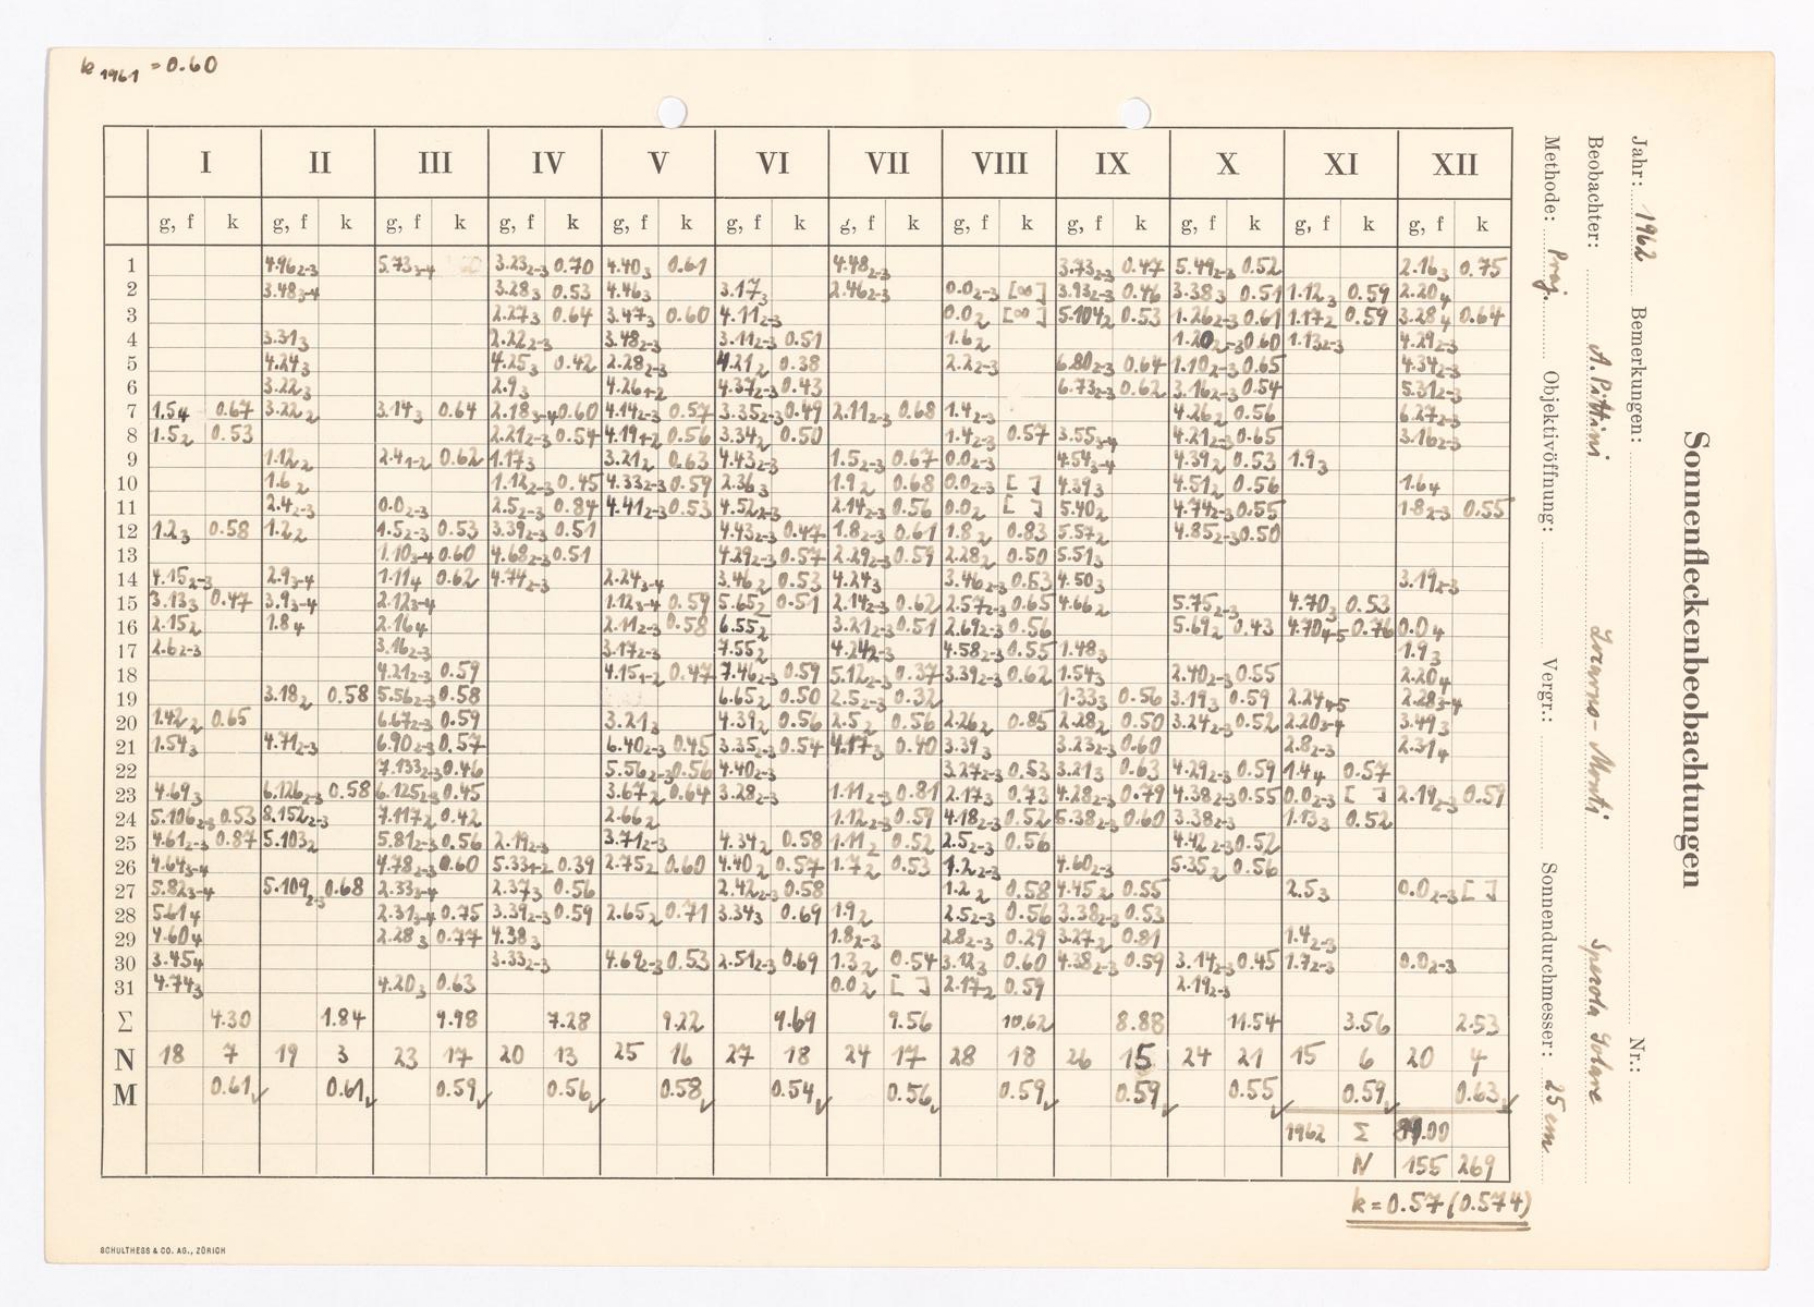 k 1961 = 0.60
Sonnenfleckenbeobachtungen
Jahr: 1962 Bemerkungen: Nr.:
Beobachter: A. Pittini Locarno-Monti Specola Solare
Methode: Proj. Objektivöffnung: Vergr.: Sonnendurchmesser: 25 cm
I II III IV V VI VII VIII IX X XI XII
g, f k g, f k g, f k g, f k g, f k g, f k g, f k g, f k g, f k g, f k g, f k g, f k
1 4.96 2-3 5.73 3-4 3.23 2-3 0.70 4.40 3 0.61 4.48 2-3 3.73 2-3 0.47 5.49 2-3 0.52 2.16 3 0.75
2 3.48 3-4 3.28 3 0.53 4.46 3 3.17 3 2.46 2-3 0.0 2-3 [∞] 3.93 2-3 0.46 3.38 3 0.51 1.12 3 0.59 2.20 4
3 2.27 3 0.64 3.47 3 0.60 4.11 2-3 0.0 2 [∞] 5.104 2 0.53 1.26 2-3 0.61 1.17 2 0.59 3.28 4 0.64
4 3.31 3 2.22 2-3 3.48 2-3 3.11 2-3 0.51 1.6 2 1.20 2-3 0.60 1.13 2-3 4.29 2-3
5 4.24 3 4.25 3 0.42 2.28 2-3 4.21 2 0.38 2.2 2-3 6.80 2-3 0.64 1.10 2-3 0.65 4.34 2-3
6 3.22 3 2.9 3 4.26 1-2 4.37 2-3 0.43 6.73 2-3 0.62 3.16 2-3 0.54 5.31 2-3
7 1.5 4 0.67 3.22 2 3.14 3 0.64 2.18 3-4 0.60 4.14 2-3 0.57 3.35 2-3 0.49 2.11 2-3 0.68 1.4 2-3 4.26 2 0.56 6.27 2-3
8 1.5 2 0.53 2.21 2-3 0.54 4.19 1-2 0.56 3.34 2 0.50 1.4 2-3 0.57 3.55 3-4 4.21 2-3 0.65 3.16 2-3
9 1.12 2 2.4 1-2 0.62 1.17 3 3.21 2 0.63 4.43 2-3 1.5 2-3 0.67 0.0 2-3 4.54 3-4 4.39 2 0.53 1.9 3
10 1.6 2 1.12 2-3 0.45 4.33 2-3 0.59 2.36 3 1.9 2 0.68 0.0 2-3 [ ] 4.39 3 4.51 2 0.56 1.6 4
11 2.4 2-3 0.0 2-3 2.5 2-3 0.84 4.41 2-3 0.53 4.52 2-3 2.14 2-3 0.56 0.0 2 [ ] 5.40 2 4.74 2-3 0.55 1.8 2-3 0.55
12 1.2 3 0.58 1.2 2 1.5 2-3 0.53 3.39 2-3 0.51 4.43 2-3 0.47 1.8 2-3 0.61 1.8 2 0.83 5.57 2 4.85 2-3 0.50
13 1.10 3-4 0.60 4.68 2-3 0.51 4.29 2-3 0.57 2.29 2-3 0.59 2.28 2 0.50 5.51 3
14 4.15 2-3 2.9 3-4 1.11 4 0.62 4.74 2-3 2.24 3-4 3.46 2 0.53 4.24 3 3.46 2-3 0.53 4.50 3 3.19 2-3
15 3.13 3 0.47 3.9 3-4 2.12 3-4 1.12 3-4 0.59 5.65 2 0.51 2.14 2-3 0.62 2.57 2-3 0.65 4.66 2 5.75 2-3 4.70 3 0.53
16 2.15 2 1.8 4 2.16 4 2.11 2-3 0.58 6.55 2 3.21 2-3 0.51 2.69 2-3 0.56 5.69 2 0.43 4.70 4-5 0.76 0.0 4
17 2.6 2-3 3.16 2-3 3.17 2-3 7.55 2 4.24 2-3 4.58 2-3 0.55 1.48 3 1.9 3
18 4.21 2-3 0.59 4.15 1-2 0.47 7.46 2-3 0.59 5.12 2-3 0.37 3.39 2-3 0.62 1.54 3 2.40 2-3 0.55 2.20 4
19 3.18 2 0.58 5.56 2-3 0.58 6.65 2 0.50 2.5 2-3 0.32 1.33 3 0.56 3.19 3 0.59 2.24 4-5 2.28 3-4
20 1.42 2 0.65 6.67 2-3 0.59 3.21 3 4.39 2 0.56 2.5 2 0.56 2.26 2 0.85 2.28 2 0.50 3.24 2-3 0.52 2.20 3-4 3.49 3
21 1.54 3 4.71 2-3 6.90 2-3 0.57 6.40 2-3 0.45 3.35 2-3 0.54 4.17 3 0.40 3.39 3 3.23 2-3 0.60 2.8 2-3 2.31 4
22 7.133 2-3 0.46 5.56 2-3 0.56 4.40 2-3 3.27 2-3 0.53 3.21 3 0.63 4.29 2-3 0.59 1.4 4 0.57
23 4.69 3 6.126 2-3 0.58 6.125 2-3 0.45 3.67 2 0.64 3.28 2-3 1.11 2-3 0.81 2.17 3 0.73 4.28 2-3 0.79 4.38 2-3 0.55 0.0 2-3 [ ] 2.19 2-3 0.59
24 5.106 2-3 0.53 8.152 2-3 7.117 2 0.42 2.66 2 1.12 2-3 0.59 4.18 2-3 0.52 5.38 2-3 0.60 3.38 2-3 1.13 3 0.52
25 4.61 2-3 0.87 5.103 2 5.81 2-3 0.56 2.19 2-3 3.71 2-3 4.34 2 0.58 1.11 2 0.52 2.5 2-3 0.56 4.42 2-3 0.52
26 4.64 3-4 4.78 2-3 0.60 5.33 1-2 0.39 2.75 2 0.60 4.40 2 0.57 1.7 2 0.53 1.2 2-3 4.60 2-3 5.35 2 0.56
27 5.82 3-4 5.109 2-3 0.68 2.33 3-4 2.37 3 0.56 2.42 2-3 0.58 1.2 2 0.58 4.45 2 0.55 2.5 3 0.0 2-3 [ ]
28 5.61 4 2.31 3-4 0.75 3.39 2-3 0.59 2.65 2 0.71 3.34 3 0.69 1.9 2 2.5 2-3 0.56 3.38 2-3 0.53
29 4.60 4 2.28 3 0.77 4.38 3 1.8 2-3 2.8 2-3 0.29 3.27 2 0.81 1.4 2-3
30 3.45 4 3.33 2-3 4.69 2-3 0.53 2.51 2-3 0.69 1.3 2 0.54 3.12 3 0.60 4.38 2-3 0.59 3.14 2-3 0.45 1.7 2-3 0.0 2-3
31 4.74 3 4.20 3 0.63 0.0 2 [ ] 2.17 2 0.59 2.19 2-3
Σ 4.30 1.84 9.98 7.28 9.22 9.69 9.56 10.62 8.88 11.54 3.56 2.53
N 18 7 19 3 23 17 20 13 25 16 27 18 24 17 28 18 26 15 24 21 15 6 20 4
M 0.61 0.61 0.59 0.56 0.58 0.54 0.56 0.59 0.59 0.55 0.59 0.63
1962 Σ 89.00
N 155 269
k = 0.57 (0.574)
SCHULTHESS & CO. AG., ZÜRICH